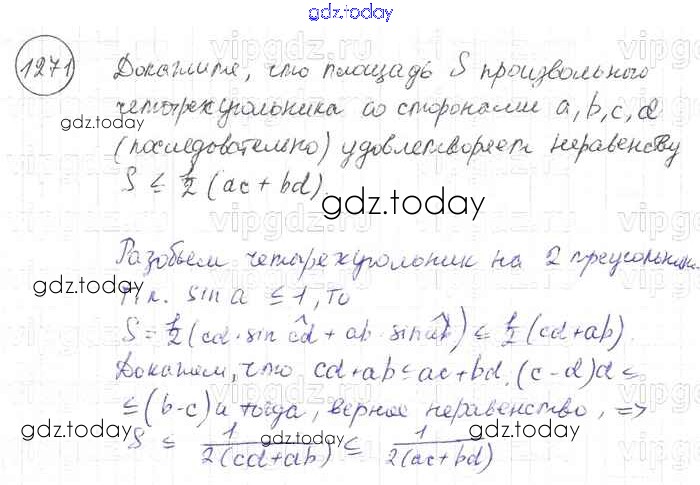 gdz.today
1271 Докажите, что площадь S произвольного
четырехугольника со сторонами a, b, c, d
gdz.today
(последовательно) удовлетворяет неравенству
S ≤ 1/2 (ac + bd).
gdz.today
Разобьем четырехугольник на 2 треугольник.
gdz.today
Т.к. sin a ≤ 1, то
S = 1/2 (cd · sin cd + ab · sin ab) ≤ 1/2 (cd + ab).
Докажем, что cd + ab ≤ ac + bd, (c - d)d ≤
≤ (b - c) и тогда, верное неравенство, =>
gdz.today gdz.today gdz.today
S ≤ 1/2(cd+ab) ≤ 1/2(ac+bd)